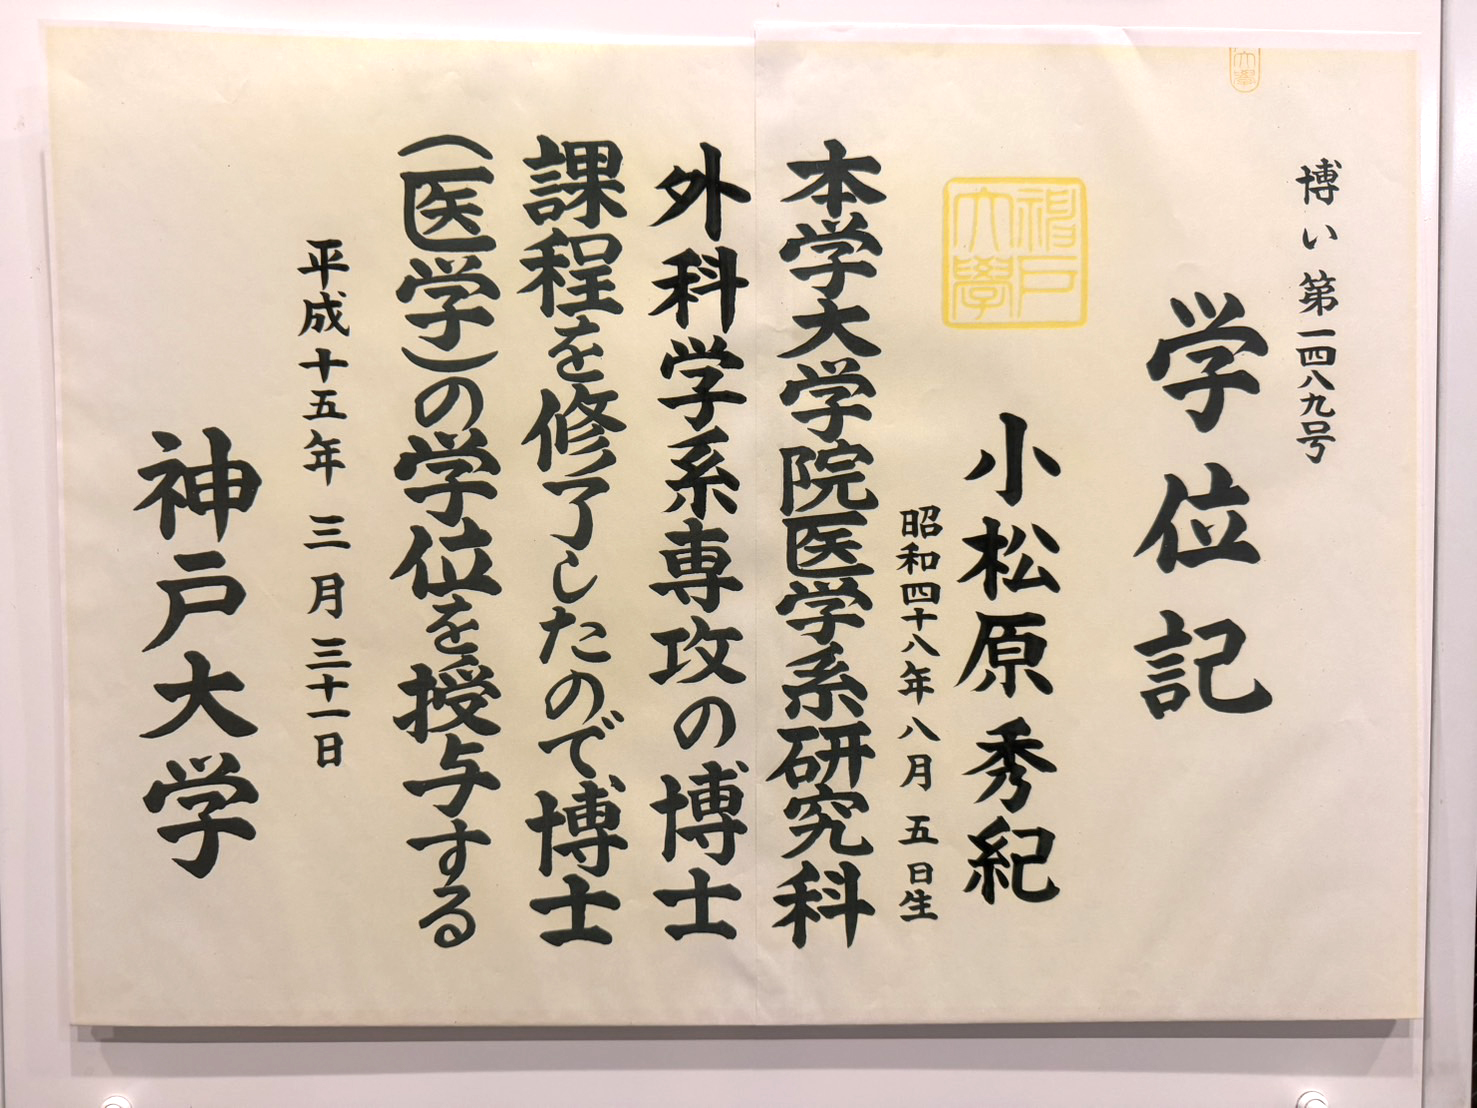 博い第一四八九号
学位記
神戸大学
小松原秀紀
昭和四十八年八月五日生
本学大学院医学系研究科
外科学系専攻の博士
課程を修了したので博士
(医学)の学位を授与する
平成十五年三月三十一日
神戸大学